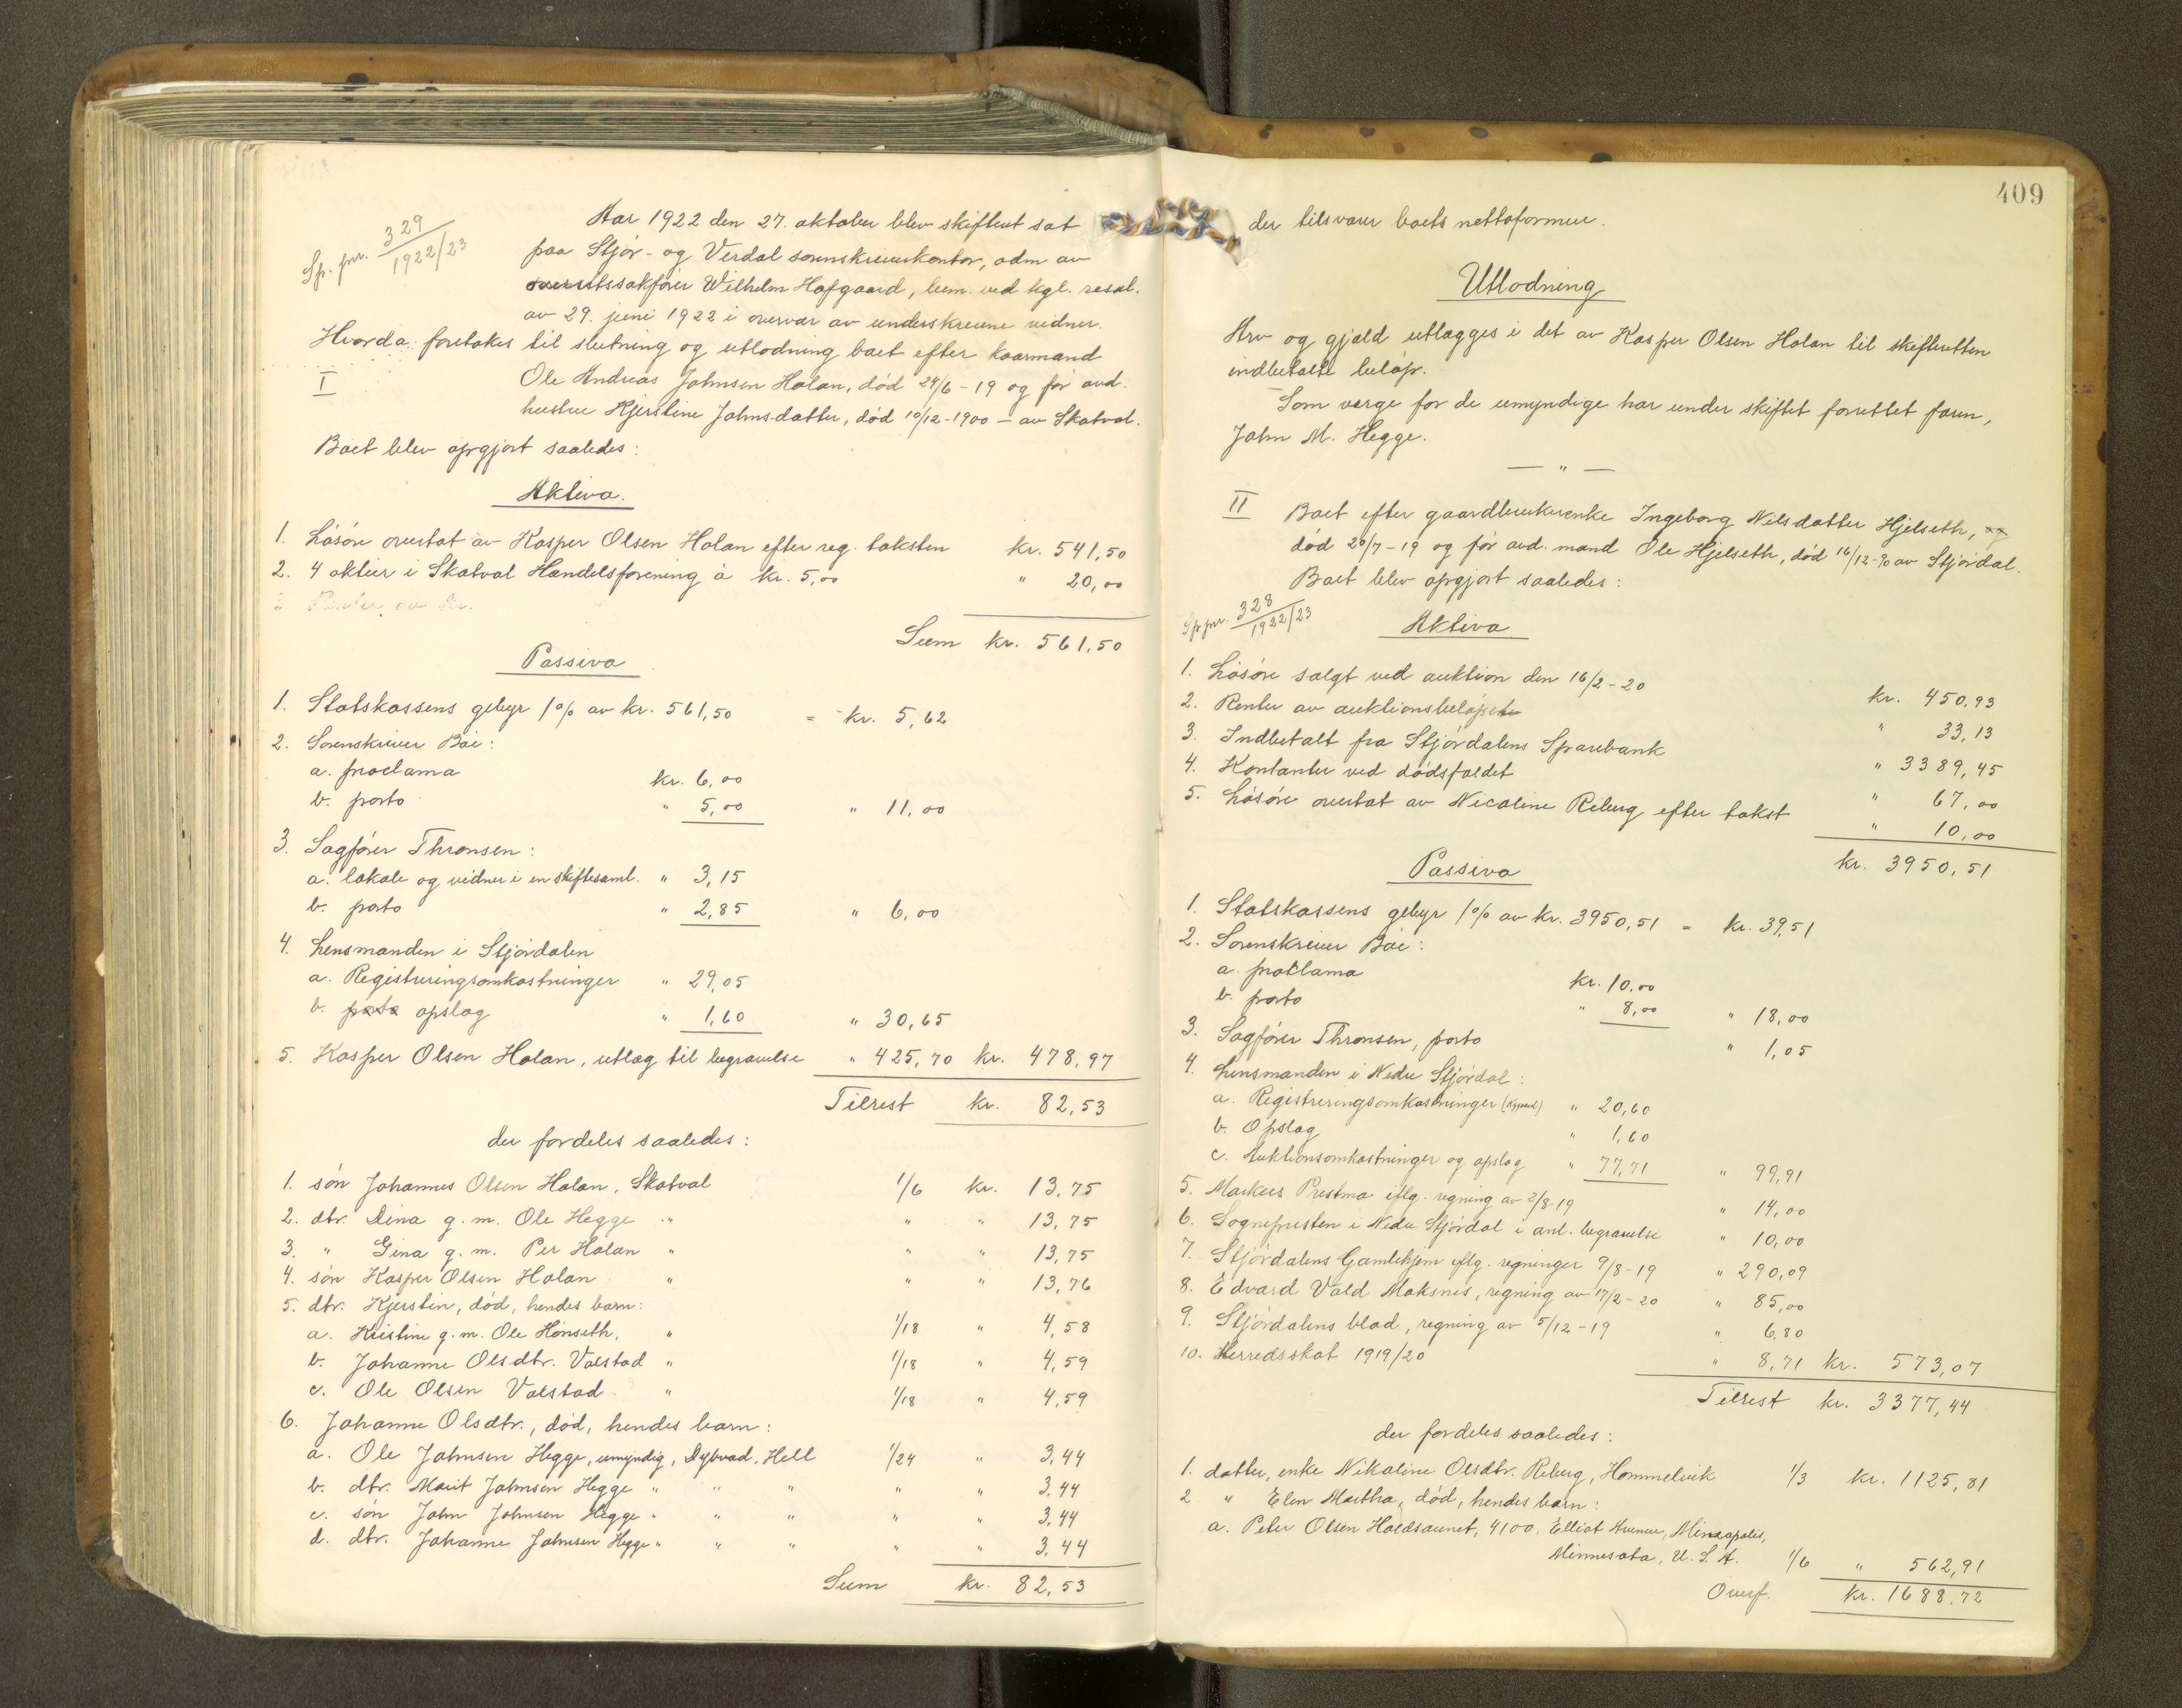 Sp. pr. 329
1922/23
Aar 1922 den 27. oktober blev skifteret sat
paa Stjør- og Verdal sorenskriverkontor, adm av
overretssakfører Wilhelm Hofgaard, bem. ved kgl. resol.
av 29. juni 1922 i overvær av underskrevne vidner.
Hvorda: foretokes til slutning og utlodning boet efter kaarmand
I Ole Andreas Johnsen Holan, død 24/6-19 og før avd.
hustru Kjerstine Johnsdatter, død 10/12-1900 - av Skatval.
Boet blev opgjort saaledes:
Aktiva.
1. Løsøre overtat av Kasper Olsen Holan efter reg. taksten kr. 541,50
2. 4 aktier i Skatval Handelsforening à kr. 5,00 " 20,00
3. Renter av kr.
Sum kr. 561,50
Passiva
1. Statskassens gebyr 1% av kr. 561,50 = kr. 5,62
2. Sorenskriver Bøe:
a. proclama kr. 6,00
b. porto " 5,00 " 11,00
3. Sagfører Thronsen:
a. lokale og vidner i en skiftesaml. " 3,15
b. porto " 2,85 " 6,00
4. Lensmanden i Stjørdalen
a. Registreringsomkostninger " 29,05
b. porto opslag " 1,60 " 30,65
5. Kasper Olsen Holan, utlæg til begravelse " 425,70 kr. 478,97
Tilrest kr. 82,53
der fordeles saaledes:
1. søn Johannes Olsen Holan, Skatval 1/6 kr. 13,75
2. dtr. Dina g. m. Ole Hegge " " " 13,75
3. " Gina g. m. Per Holan " " " 13,75
4. søn Kasper Olsen Holan " " " 13,76
5. dtr. Kjerstin, død, hendes barn:
a. Kristine g. m. Ole Hønseth, " 1/18 " 4,58
b. Johanne Olsdtr. Valstad " 1/18 " 4,59
c. Ole Olsen Valstad " 1/18 " 4,59
6. Johanne Olsdtr., død, hendes barn:
a. Ole Johnsen Hegge, umyndig, Dybvad, Hell 1/24 " 3,44
b. dtr. Marit Johnsen Hegge " " " " " 3,44
c. søn John Johnsen Hegge " " " " " 3,44
d. dtr. Johanne Johnsen Hegge " " " " " 3,44
Sum kr. 82,53
409
der tilsvarer boets nettoformue.
Utlodning
Arv og gjæld utlægges i det av Kasper Olsen Holan til skifteretten
indbetalte beløp.
Som verge for de umyndige har under skiftet forrettet faren,
John M. Hegge.
— " —
II Boet efter gaardbrukerenke Ingeborg Nilsdatter Hjelseth, og
død 20/7-19 og før avd. mand Ole Hjelseth, død 16/12-90 av Stjørdal.
Boet blev opgjort saaledes:
Sp pr. 328
1922/23
Aktiva
1. Løsøre solgt ved auktion den 16/2-20 kr. 450,93
2. Renter av auktionsbeløpet " 33,13
3. Indbetalt fra Stjørdalens Sparebank " 3389,45
4. Kontanter ved dødsfaldet " 67,00
5. Løsøre overtat av Nicoline Reberg efter takst " 10,00
kr. 3950,51
Passiva
1. Statskassens gebyr 1% av kr. 3950,51 = kr. 39,51
2. Sorenskriver Bøe:
a. proklama kr. 10,00
b. porto " 8,00 " 18,00
3. Sagfører Thronsen, porto " 1,05
4. Lensmanden i Nedre Stjørdal:
a. Registreringsomkostninger " 20,60
b. Opslag " 1,60
c. Auktionsomkostninger og opslag " 77,71 " 99,91
5. Markus Prestmo iflg. regning av 2/8-19 " 14,00
6. Sognepresten i Nedre Stjørdal i anl. begravelse " 10,00
7. Stjørdalens Gamlehjem iflg. regninger 9/8-19 " 290,09
8. Edvard Vold Moksnes, regning av 17/2-20 " 85,00
9. Stjørdalens blad, regning av 5/12-19 " 6,80
10. Herredsskat 1919/20 " 8,71 kr. 573,07
Tilrest kr. 3377,44
der fordeles saaledes:
1. datter, enke Nikoline Olsdtr. Reberg, Hommelvik 1/3 kr. 1125,81
2 " Elen Martha, død, hendes barn:
a. Peter Olsen Haldsaunet, 4100. Elliot Avenue, Mineapolis,
Minnesota, U. S. A. 1/6 " 562,91
Overf. kr. 1688,72